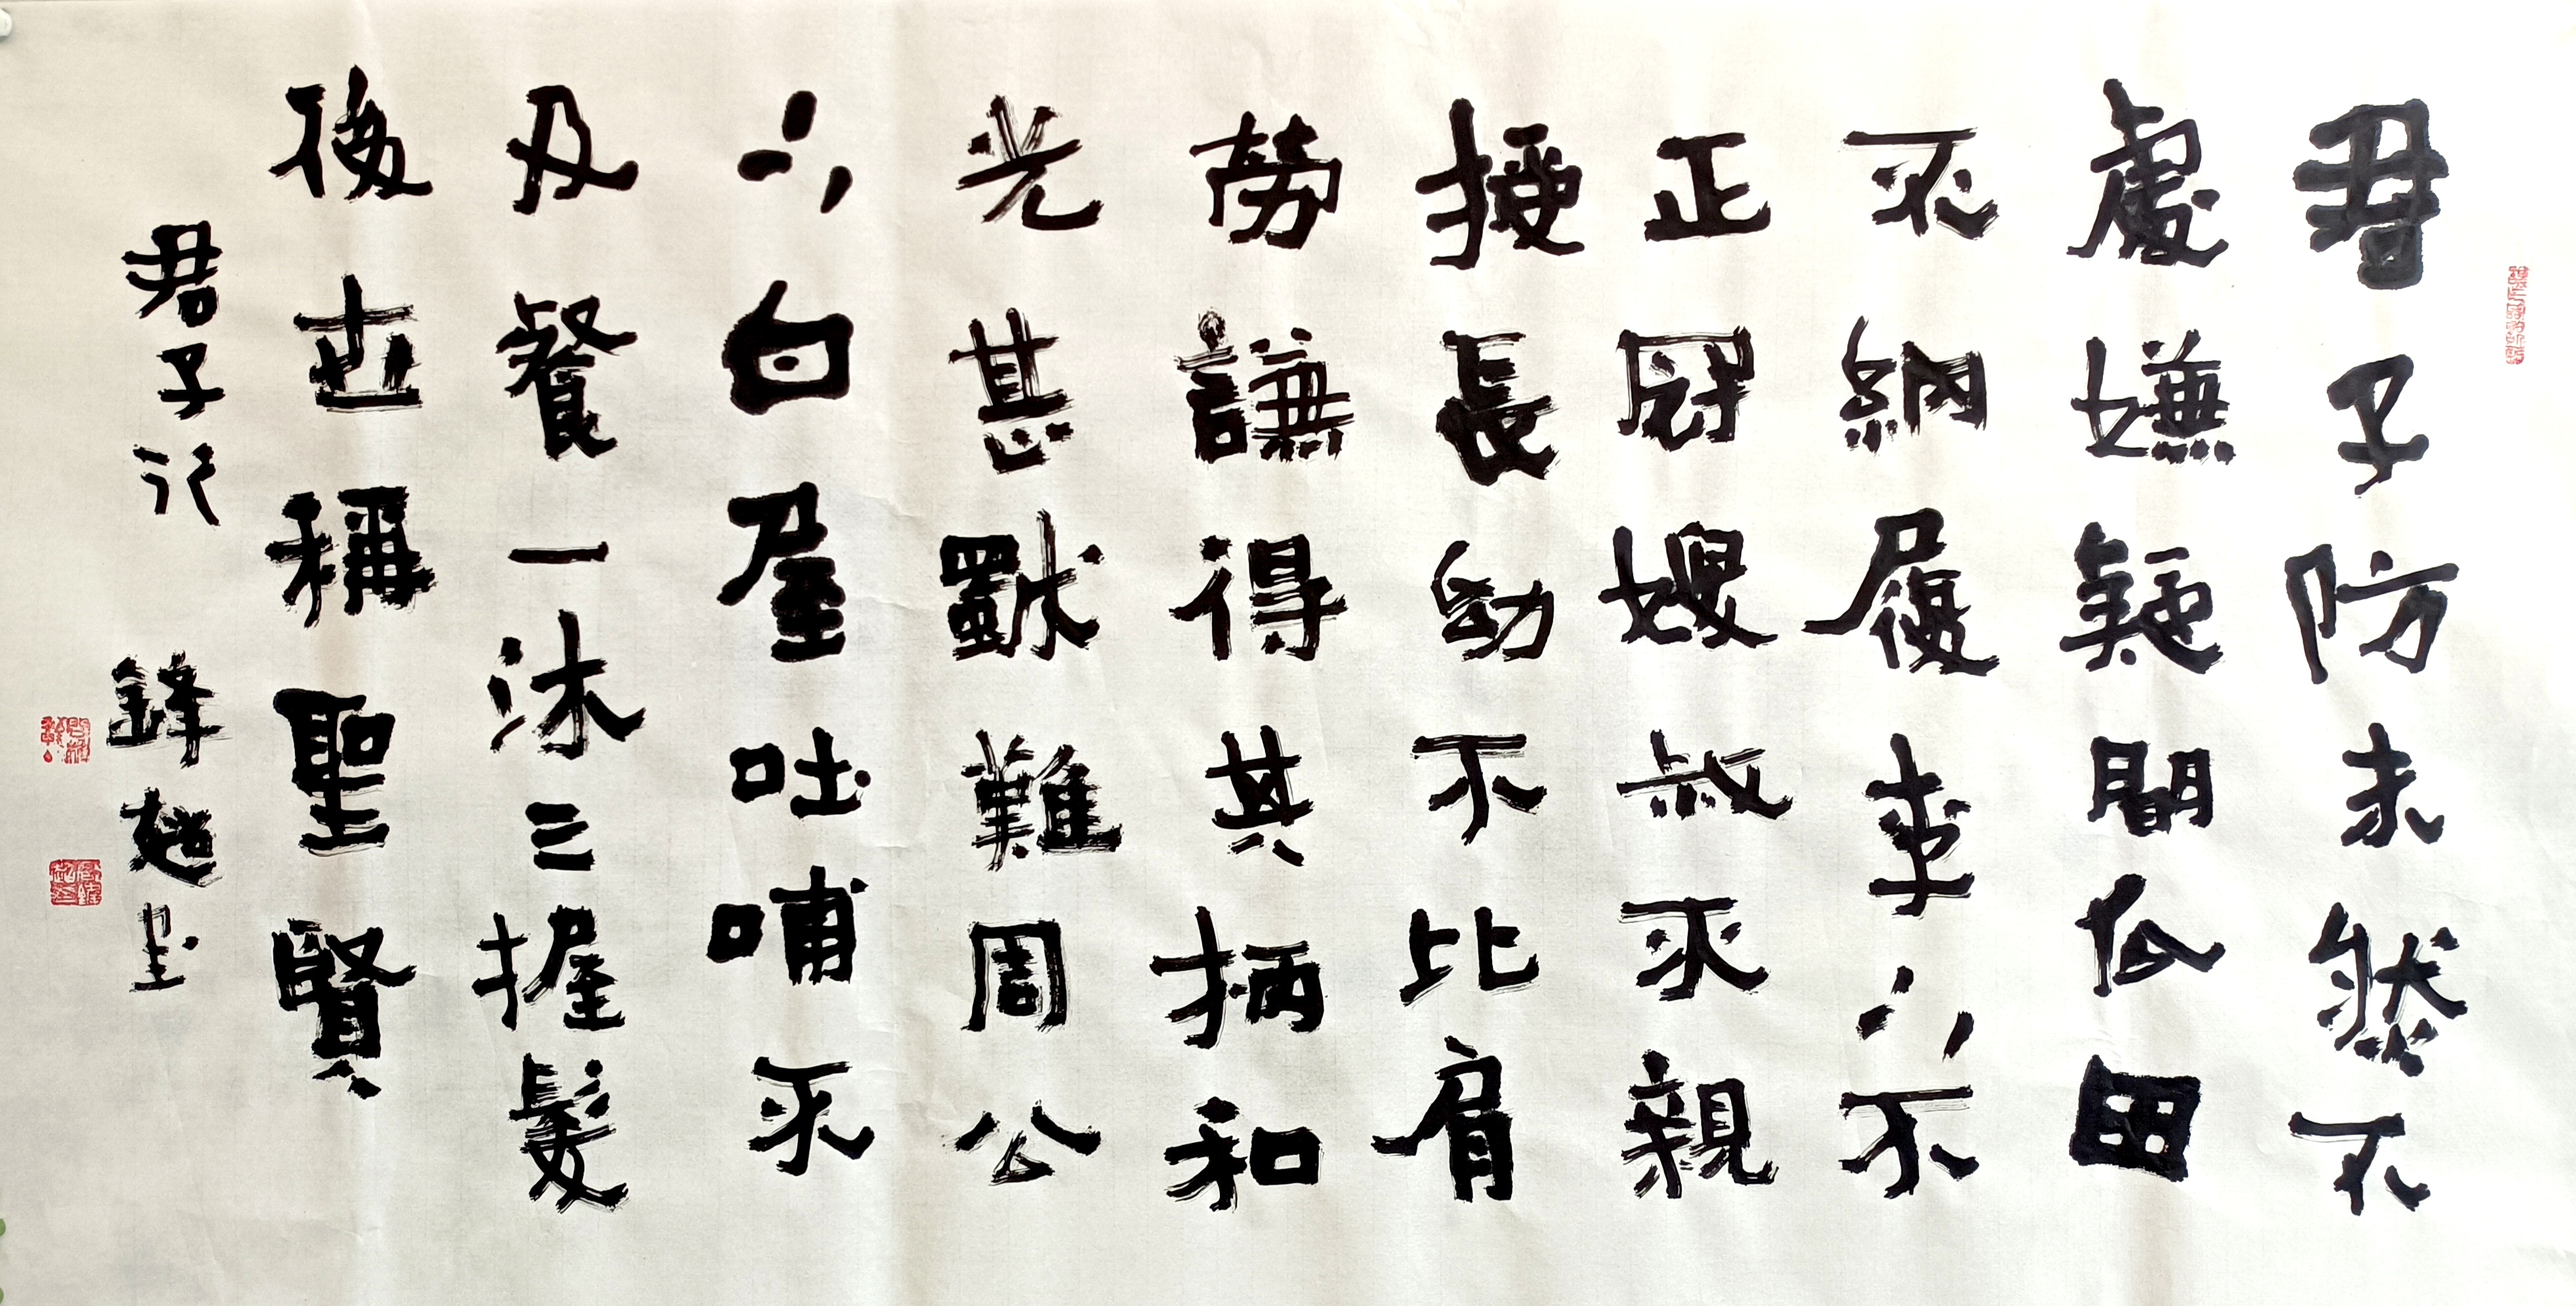 君子防未然不
處嫌疑間瓜田
不納履李下不
正冠嫂叔不親
授長幼不比肩
勞謙得其柄和
光甚獨難周公
下白屋吐哺不
及餐一沐三握髮
後世稱聖賢
君子行 鋒超墨